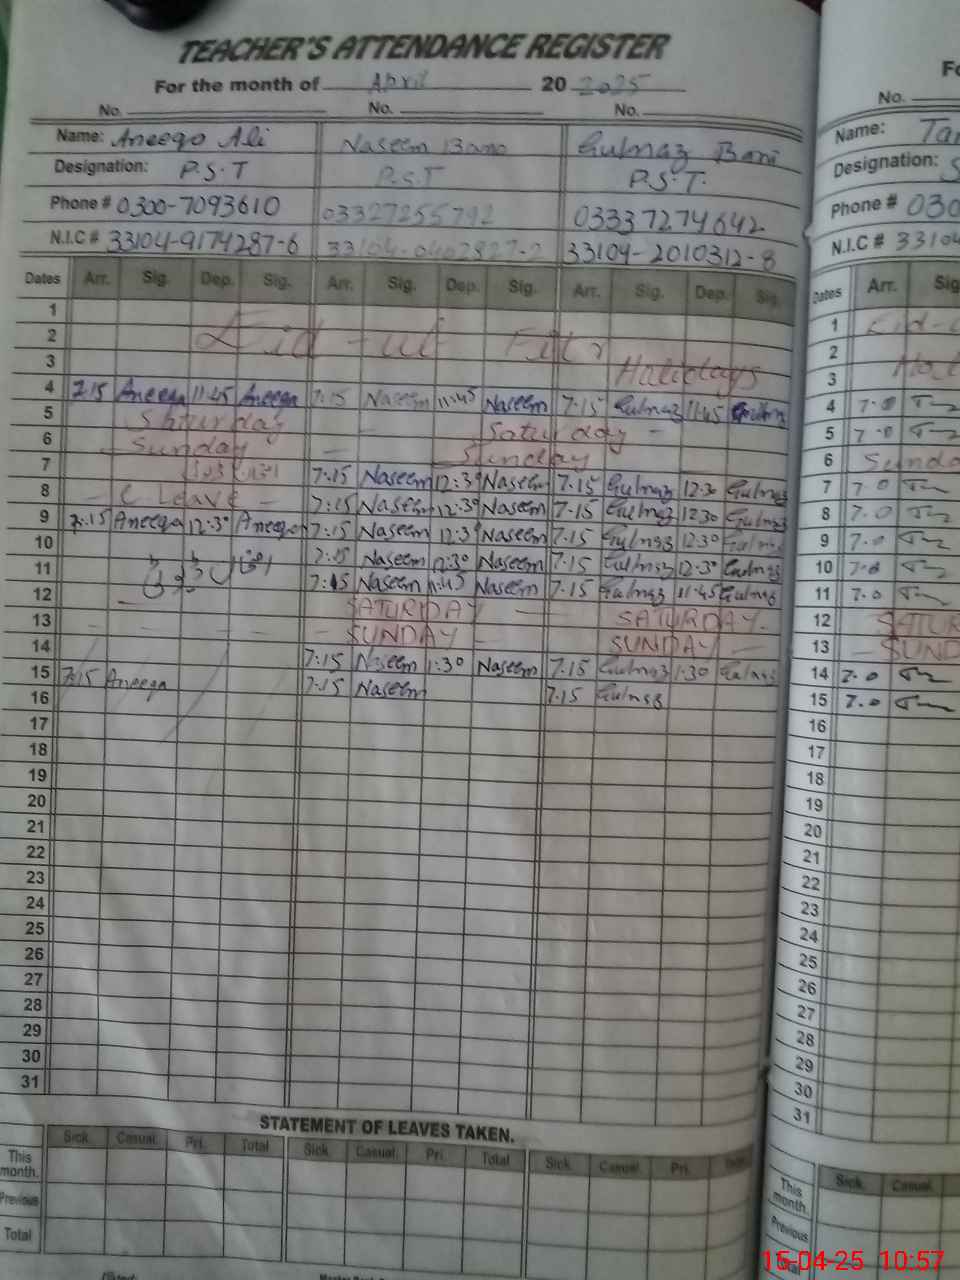 TEACHER'S ATTENDANCE REGISTER
For the month of April 20 2025
No. No. No.
Name: Aneeqa Ali Naseem Bano Gulnaz Bani
Designation: P.S.T P.S.T P.S.T.
Phone # 0300-7093610 03327255792 03337274642
N.I.C # 33104-9174287-6 33104-0402827-2 33104-2010312-8
Dates Arr. Sig. Dep. Sig. Arr. Sig. Dep. Sig. Arr. Sig. Dep. Sig.
1
2 Eid-ul Fitr
3 Holidays
4 7:15 Aneeqa 11:45 Aneeqa 7:15 Naseem 11:45 Naseem 7.15 Gulnaz 11:45 Gulnaz
5 Saturday Saturday
6 Sunday Sunday
7 7:15 Naseem 12:30 Naseem 7.15 Gulnaz 12:30 Gulnaz
8 C Leave 7:15 Naseem 12:30 Naseem 7.15 Gulnaz 12:30 Gulnaz
9 7:15 Aneeqa 12:30 Aneeqa 7:15 Naseem 12:30 Naseem 7.15 Gulnaz 12:30 Gulnaz
10 7:15 Naseem 12:30 Naseem 7.15 Gulnaz 12:30 Gulnaz
11 7:15 Naseem 11:45 Naseem 7.15 Gulnaz 11:45 Gulnaz
12 SATURDAY SATURDAY.
13 SUNDAY SUNDAY
14 7:15 Naseem 1:30 Naseem 7.15 Gulnaz 1:30 Gulnaz
15 7:15 Aneeqa 7:15 Naseem 7.15 Gulnaz
16
17
18
19
20
21
22
23
24
25
26
27
28
29
30
31
STATEMENT OF LEAVES TAKEN.
Sick. Casual. Pri. Total Sick. Casual. Pri. Total Sick Casual. Pri.
This month.
Previous
Total
No.
Name:
Designation:
Phone # 030
N.I.C # 33104
Dates Arr. Sig
1
2
3
4 7.0
5 7.0
6 Sunda
7 7.0
8 7.0
9 7.0
10 7.0
11 7.0
12 SATUR
13 SUND
14 7.0
15 7.0
16
17
18
19
20
21
22
23
24
25
26
27
28
29
30
31
Sick. Casual.
This month.
Previous
Total
15-04-25 10:57